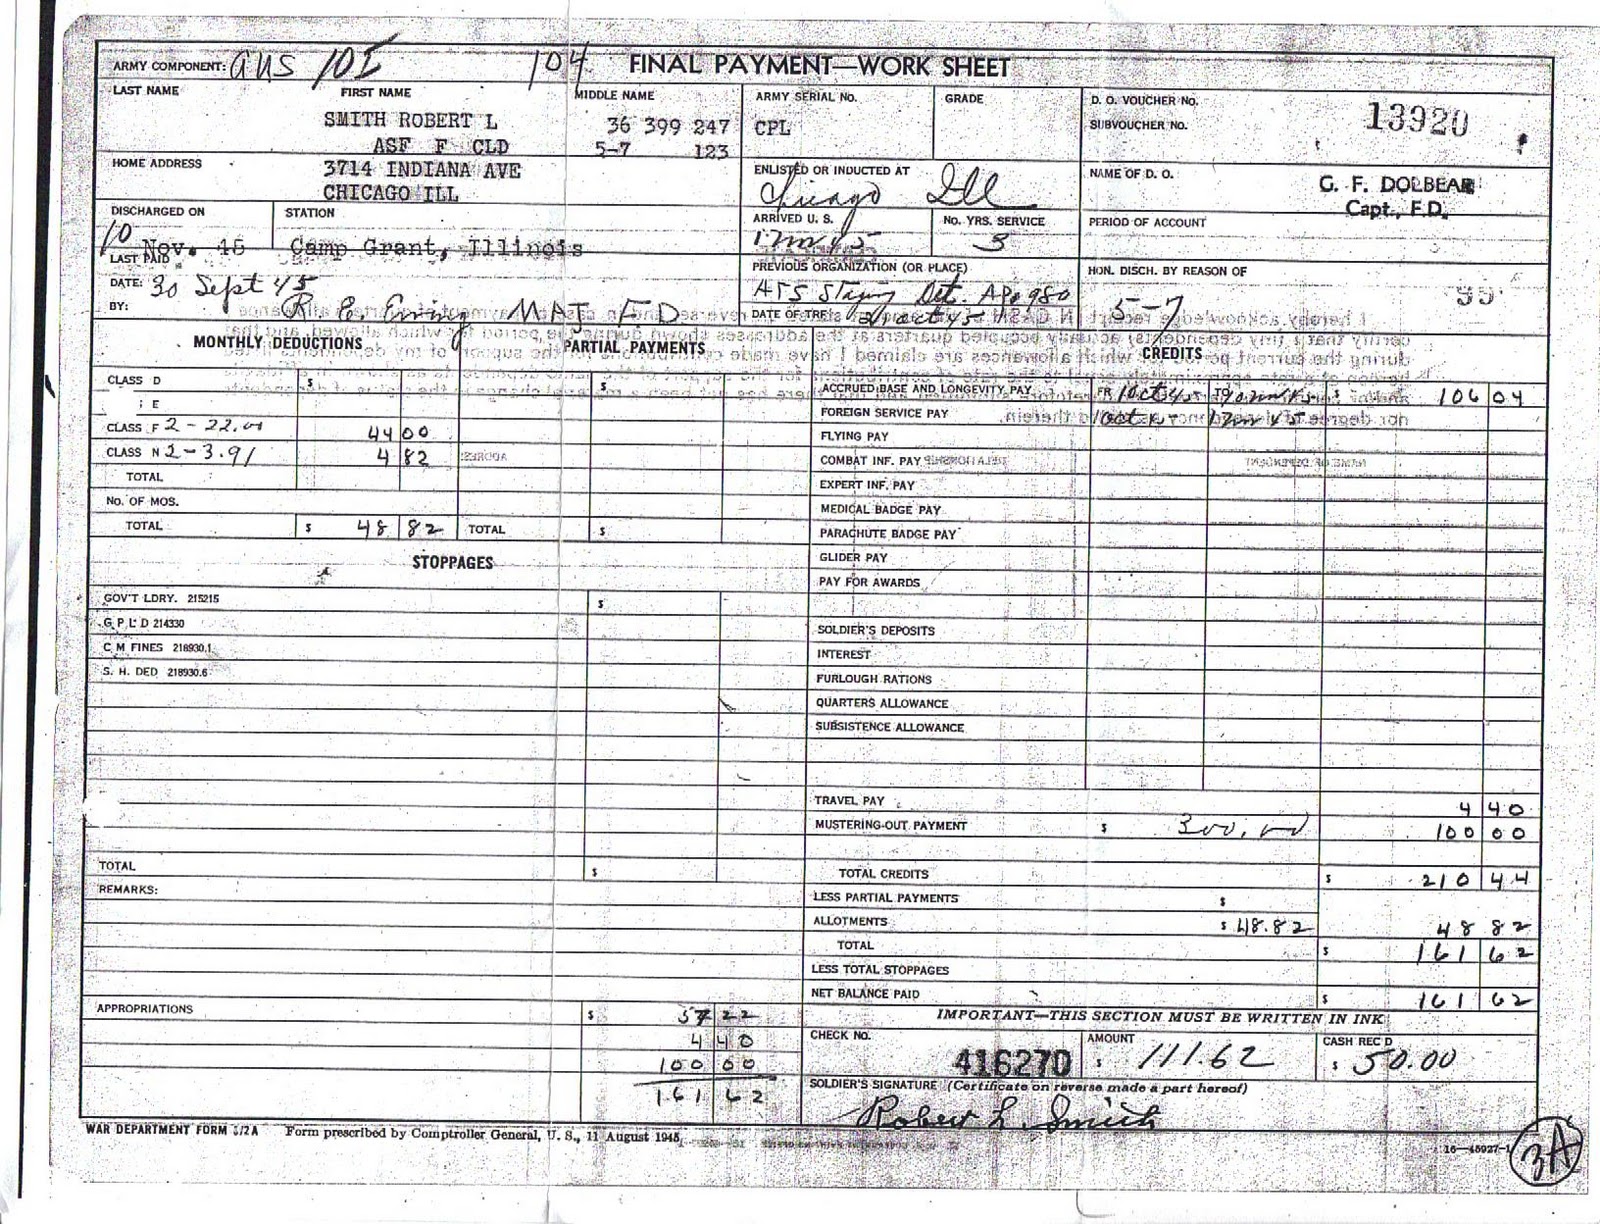 ARMY COMPONENT: AUS 10I 104 FINAL PAYMENT—WORK SHEET
LAST NAME FIRST NAME MIDDLE NAME ARMY SERIAL NO. GRADE D. O. VOUCHER NO. 13920
SUBVOUCHER NO.
SMITH ROBERT L 36 399 247 CPL
ASF F CLD 5-7 123
HOME ADDRESS 3714 INDIANA AVE
CHICAGO ILL
ENLISTED OR INDUCTED AT Chicago Ill
NAME OF D. O. G. F. DOLBEAR
Capt., F.D.
DISCHARGED ON 10 Nov. 45 STATION Camp Grant, Illinois
ARRIVED U. S. NO. YRS. SERVICE 3 PERIOD OF ACCOUNT
LAST PAID
DATE: 30 Sept 45
BY: MAJ F.D
PREVIOUS ORGANIZATION (OR PLACE) Staging Det. APO 980
HON. DISCH. BY REASON OF 5-7
MONTHLY DEDUCTIONS PARTIAL PAYMENTS CREDITS
CLASS D $ $
E
CLASS F 2-22.00 44 00
CLASS N 2-3.91 4 82
TOTAL
NO. OF MOS.
TOTAL $ 48 82 TOTAL $
STOPPAGES
GOV'T LDRY. 215215 $
G P L D 214330
C M FINES 218930.1
S. H. DED 218930.6
TOTAL $
REMARKS:
APPROPRIATIONS $ 57 22
4 40
100 00
161 62
ACCRUED BASE AND LONGEVITY PAY FR 1 Oct 45 TO 106 04
FOREIGN SERVICE PAY
FLYING PAY
COMBAT INF. PAY
EXPERT INF. PAY
MEDICAL BADGE PAY
PARACHUTE BADGE PAY
GLIDER PAY
PAY FOR AWARDS
SOLDIER'S DEPOSITS
INTEREST
FURLOUGH RATIONS
QUARTERS ALLOWANCE
SUBSISTENCE ALLOWANCE
TRAVEL PAY 4 40
MUSTERING-OUT PAYMENT $ 300.00 100 00
TOTAL CREDITS $ 210 44
LESS PARTIAL PAYMENTS $
ALLOTMENTS $ 48.82 48 82
TOTAL $ 161 62
LESS TOTAL STOPPAGES
NET BALANCE PAID $ 161 62
IMPORTANT—THIS SECTION MUST BE WRITTEN IN INK
CHECK NO. 416270 AMOUNT $ 111.62 CASH REC'D $ 50.00
SOLDIER'S SIGNATURE (Certificate on reverse made a part hereof)
Robert L. Smith
WAR DEPARTMENT FORM 372A Form prescribed by Comptroller General, U. S., 11 August 1945
16—45927-1
3A